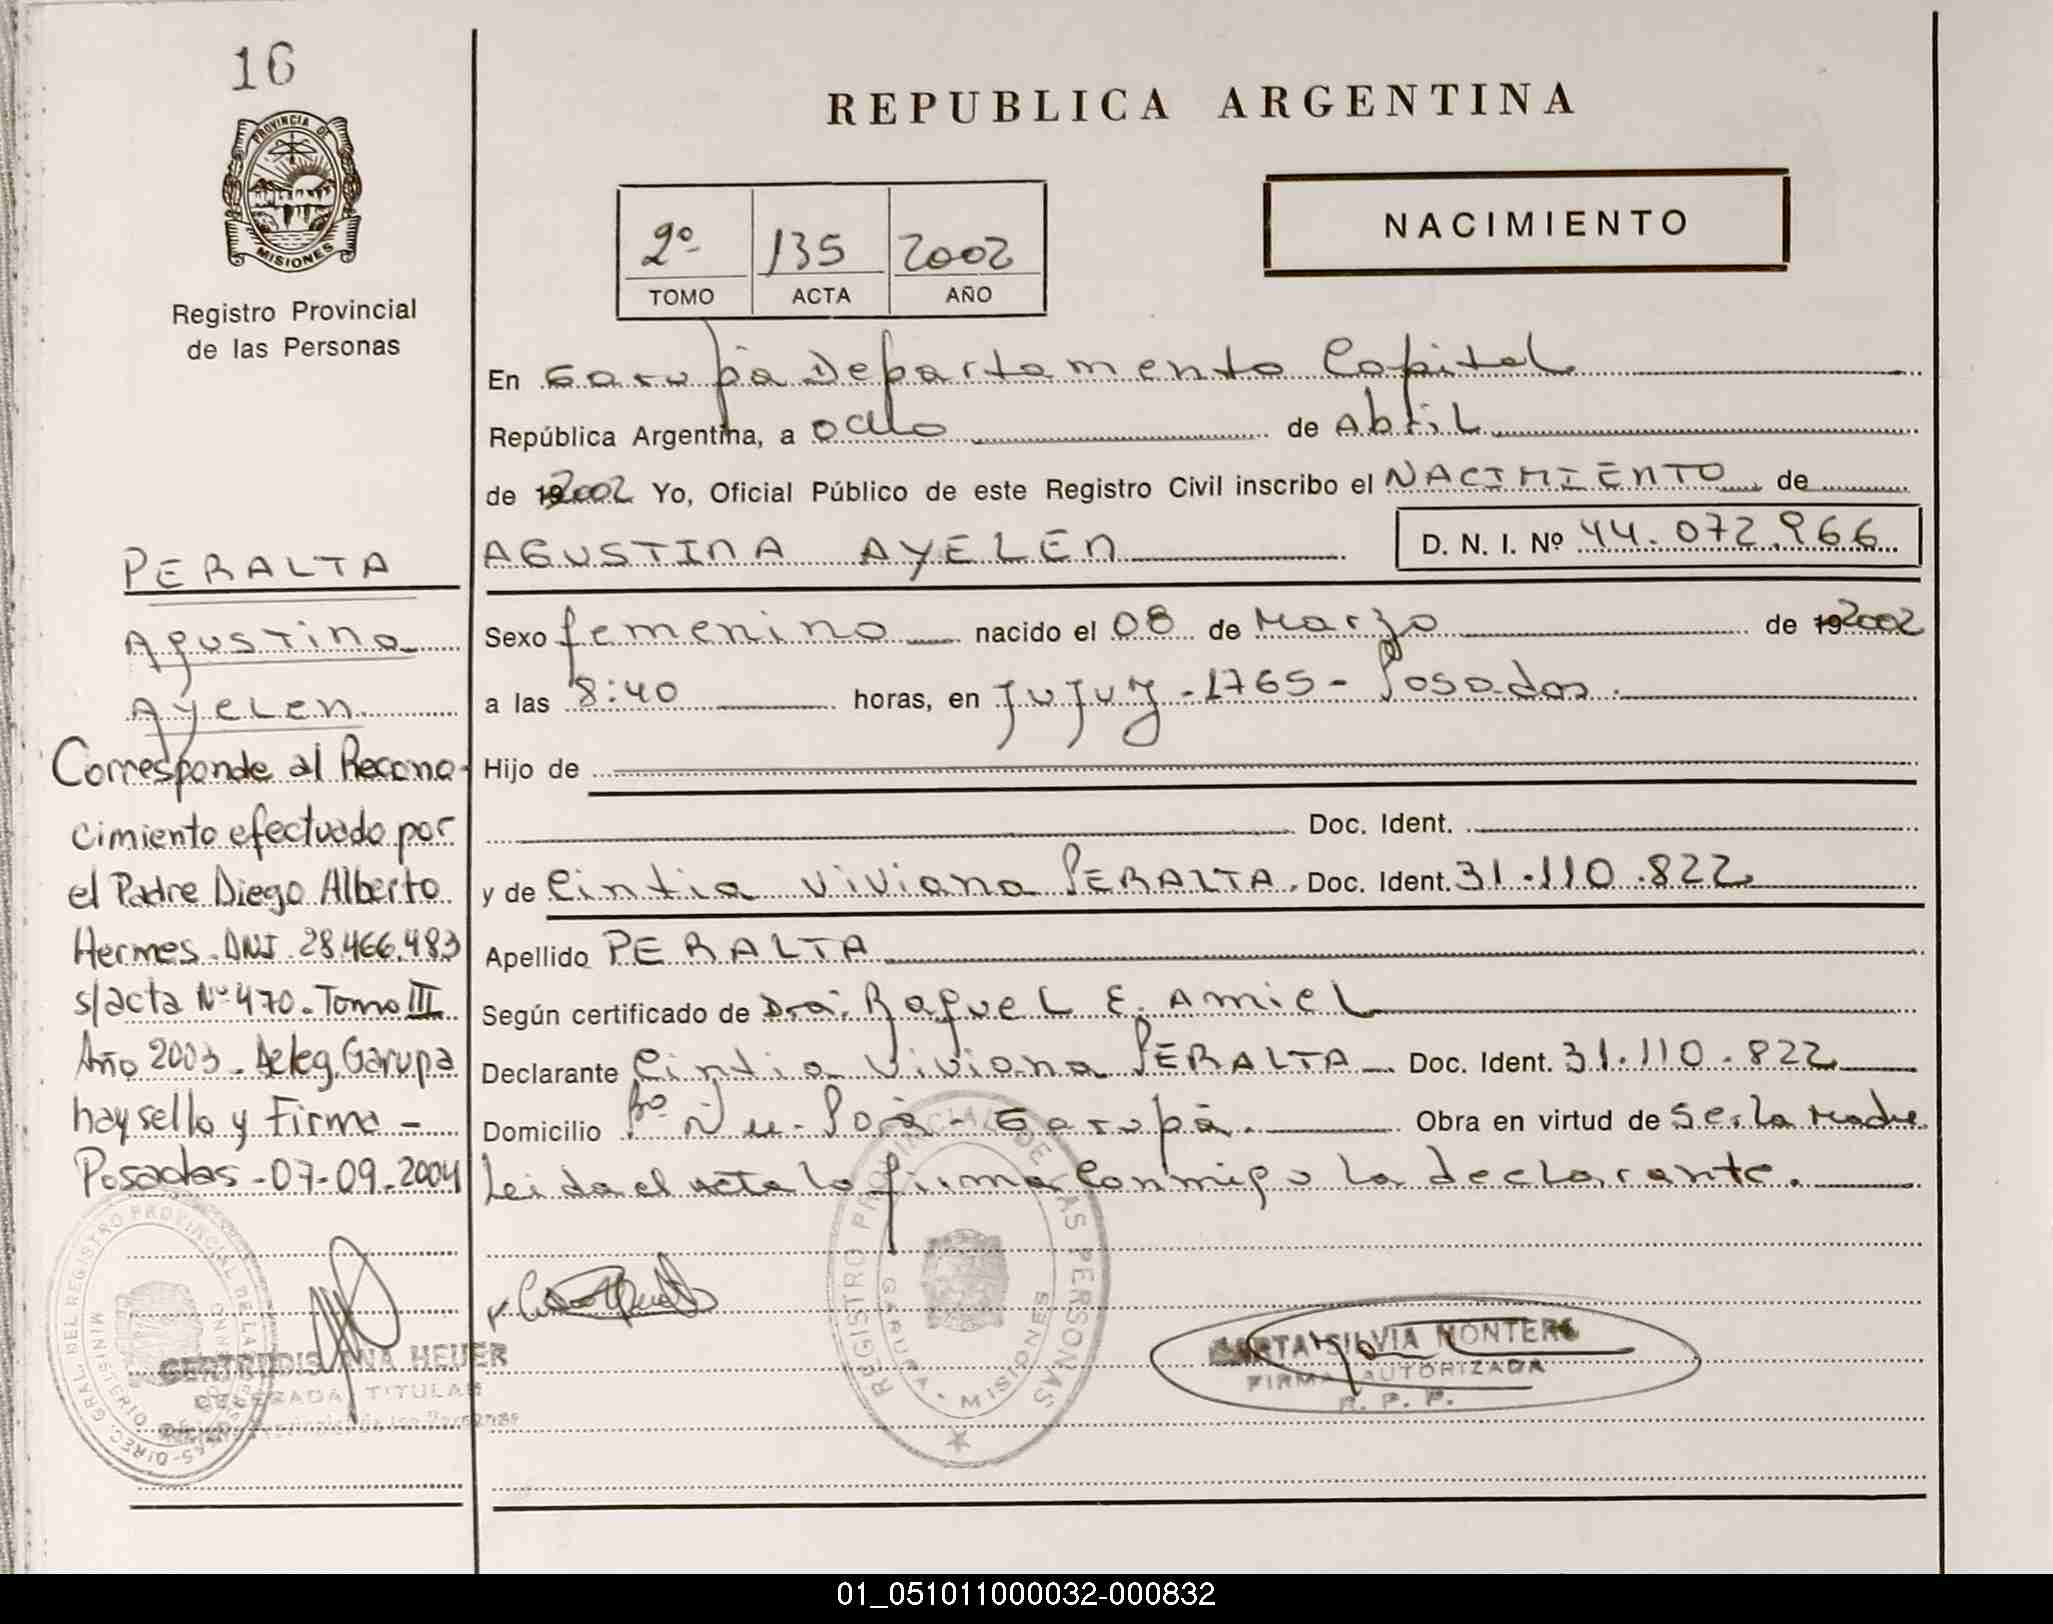 16
PROVINCIA DE
MISIONES
Registro Provincial
de las Personas
PERALTA
Agustina
Ayelen
Corresponde al Recono-
cimiento efectuado por
el Padre Diego Alberto
Hermes - DNI 28.466.483
s/acta Nº 470 - Tomo III
Año 2003 - Deleg. Garupa
hay sello y Firma -
Posadas - 07-09-2004
GERTRUDIS ANA HEUER
DELEGADA TITULAR
REPUBLICA ARGENTINA
NACIMIENTO
2º 135 2002
TOMO ACTA AÑO
En Garupá Departamento Capital
República Argentina, a ocho de Abril
de 192002 Yo, Oficial Público de este Registro Civil inscribo el NACIMIENTO de
AGUSTINA AYELEN D. N. I. Nº 44.072.966
Sexo femenino nacido el 08 de Marzo de 192002
a las 8:40 horas, en Jujuy - 1765 - Posadas.
Hijo de
Doc. Ident.
y de Cintia Viviana PERALTA. Doc. Ident. 31.110.822
Apellido PERALTA
Según certificado de Dra. Raquel E. Amiel
Declarante Cintia Viviana PERALTA - Doc. Ident. 31.110.822
Domicilio Bº Ñu-Porá - Garupá. Obra en virtud de Ser la Madre.
Leida el acta la firma conmigo la declarante.
REGISTRO PROVINCIAL DE LAS PERSONAS
GARUPA - MISIONES
SILVIA MONTERO
FIRMA AUTORIZADA
R. P. P.
01_051011000032-000832